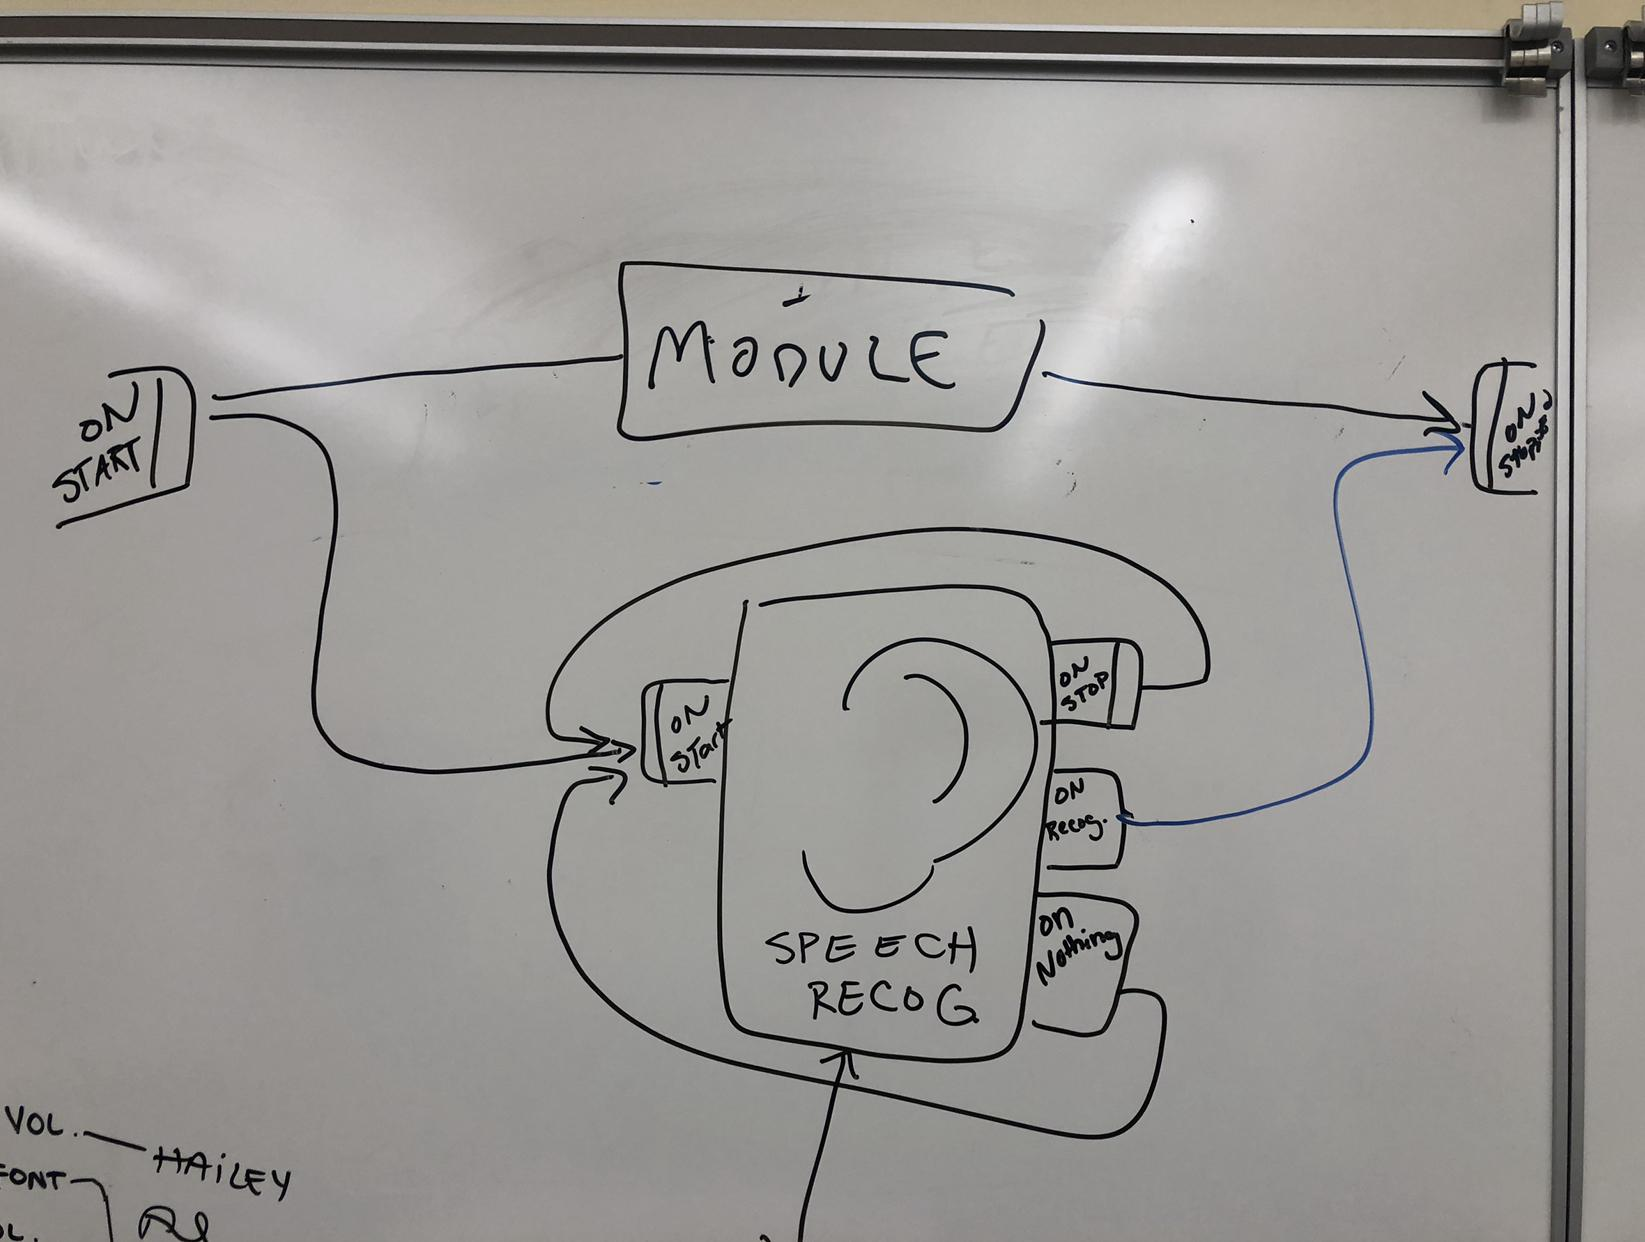 MODULE
ON
START
ON
ON
STOP
ON
START
ON
Recog.
ON
Nothing
SPEECH
RECOG
VOL.
HAILEY
FONT